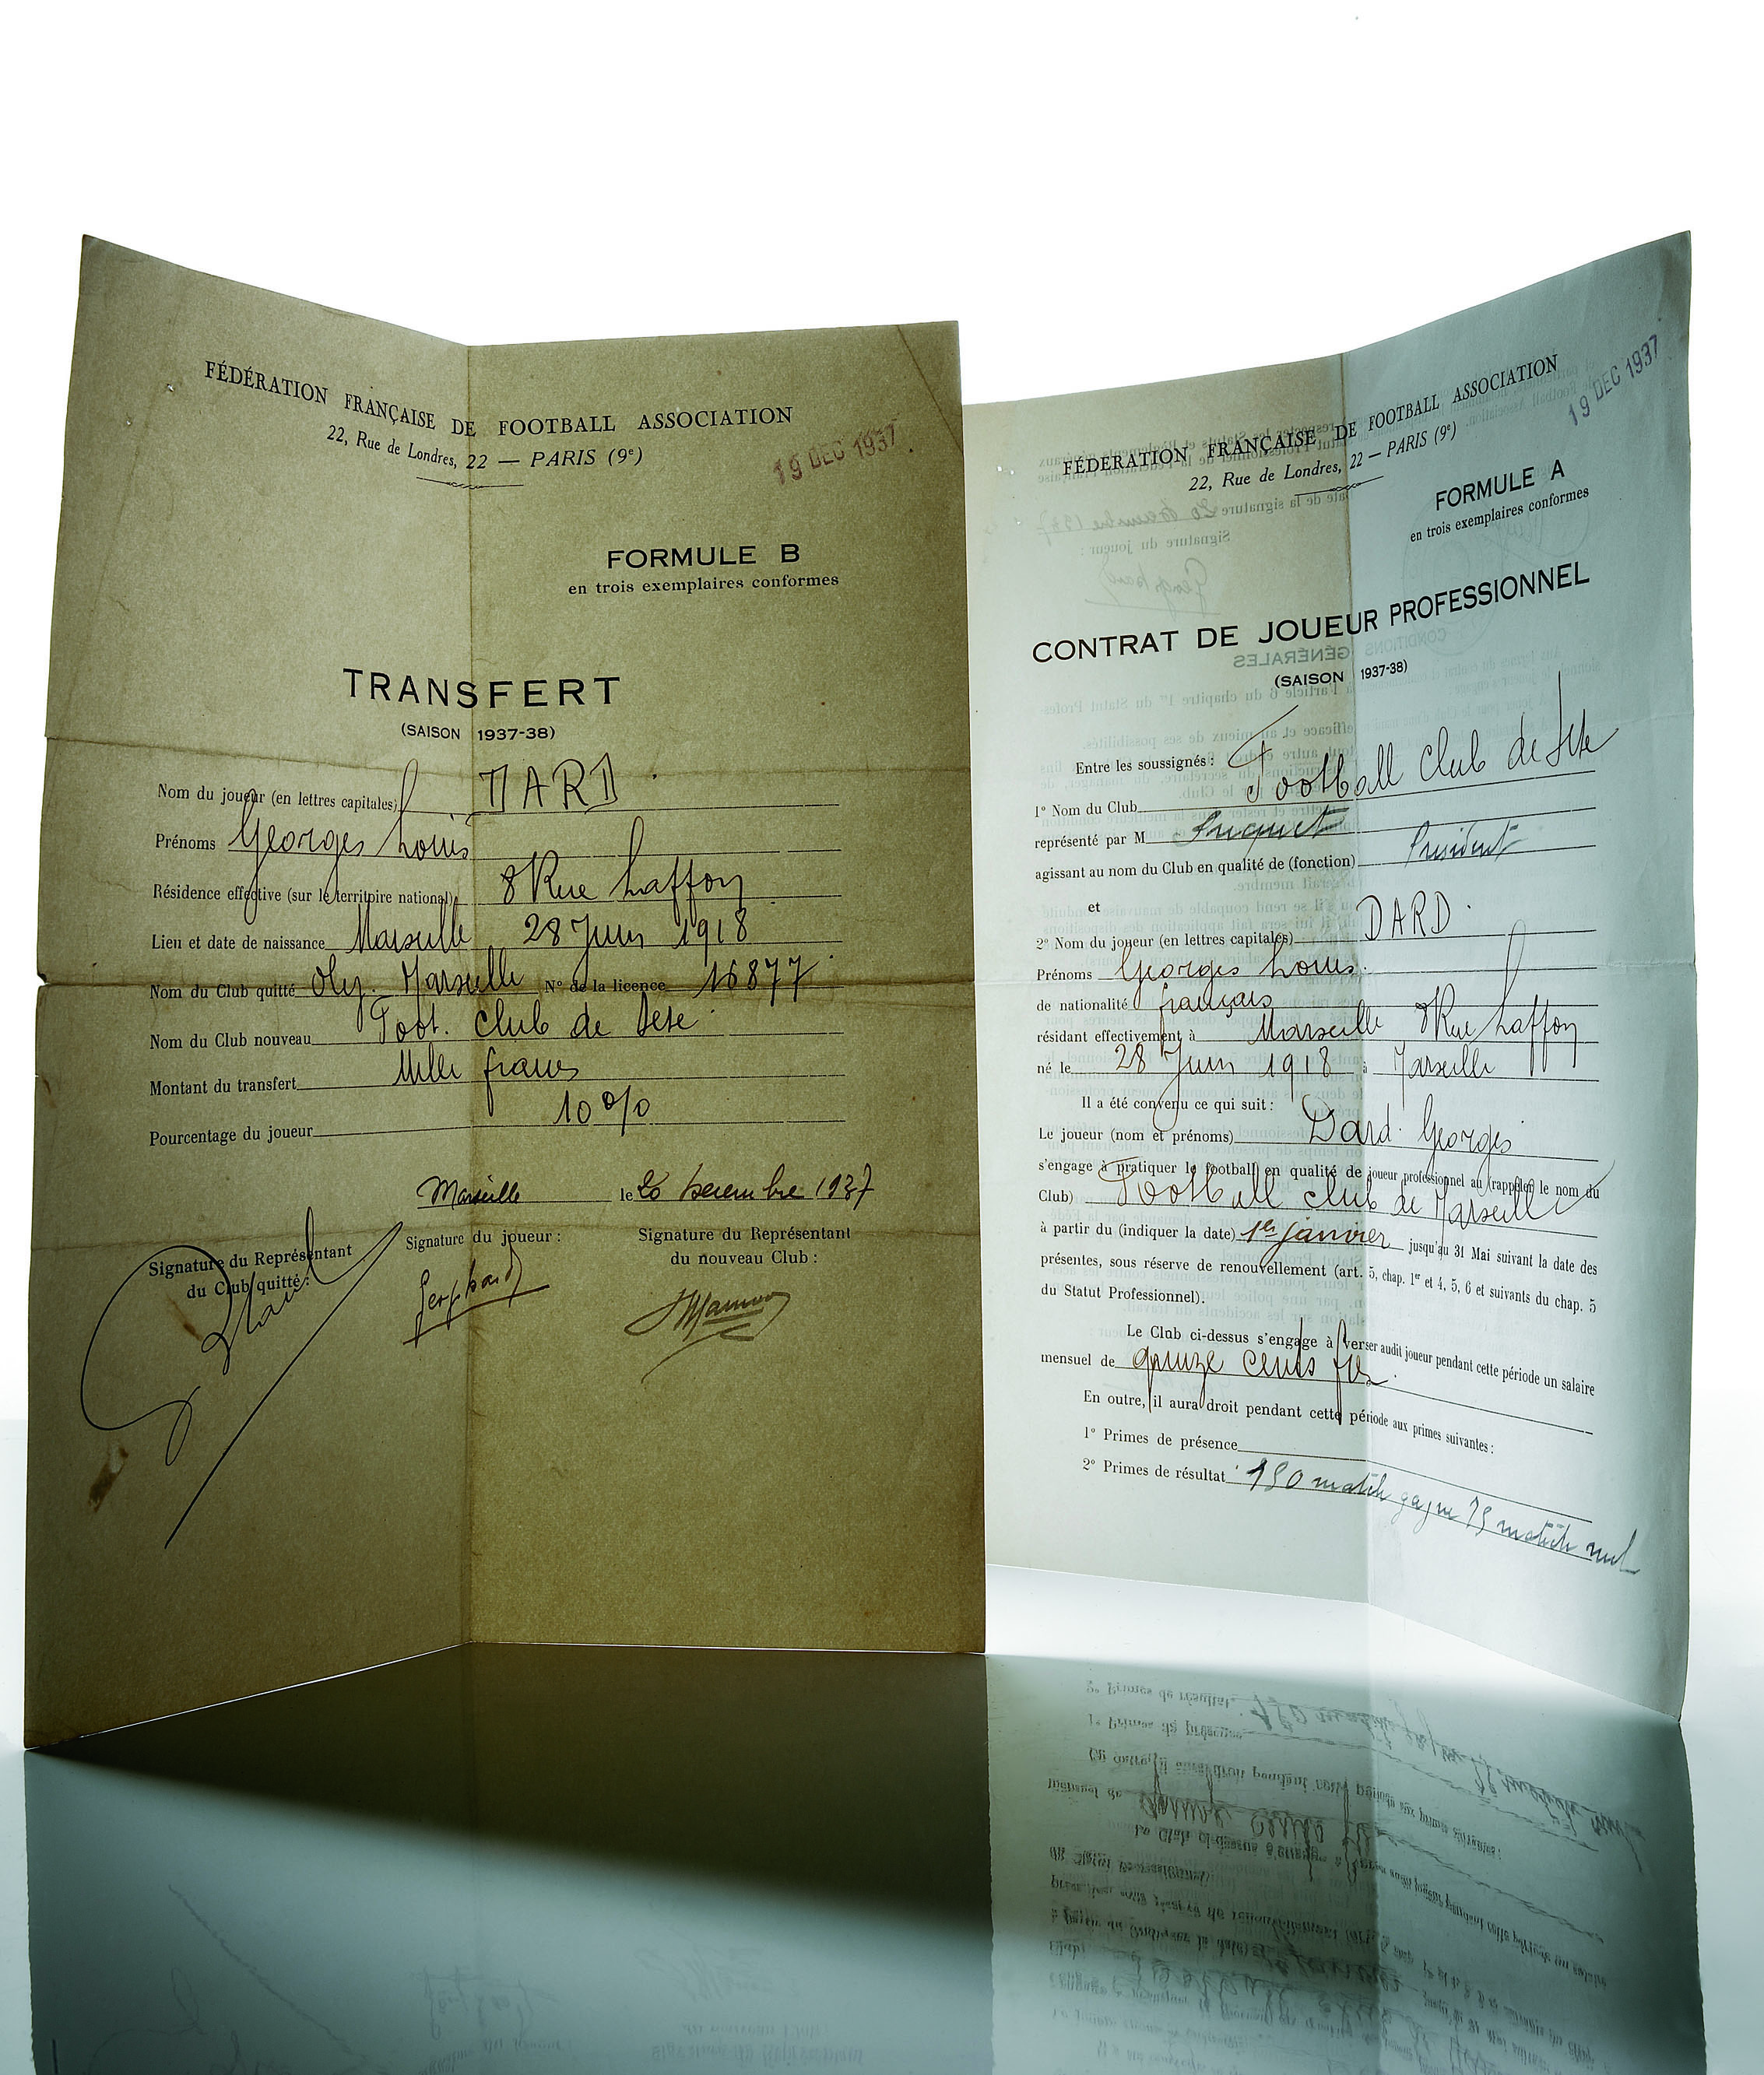 FÉDÉRATION FRANÇAISE DE FOOTBALL ASSOCIATION
22, Rue de Londres, 22 — PARIS (9e)
19 DEC 1937
FORMULE B
en trois exemplaires conformes
TRANSFERT
(SAISON 1937-38)
Nom du joueur (en lettres capitales) DARD
Prénoms Georges Louis
Résidence effective (sur le territoire national) 8 Rue Laffon
Lieu et date de naissance Marseille 28 Juin 1918
Nom du Club quitté Oly. Marseille N° de la licence 16877
Nom du Club nouveau Foot. Club de Sete
Montant du transfert Mille francs
Pourcentage du joueur 10 %
Marseille le 20 Decembre 1937
Signature du Représentant
du Club quitté :
Signature du joueur :
Signature du Représentant
du nouveau Club :
FÉDÉRATION FRANÇAISE DE FOOTBALL ASSOCIATION
22, Rue de Londres, 22 — PARIS (9e)
19 DEC 1937
FORMULE A
en trois exemplaires conformes
CONTRAT DE JOUEUR PROFESSIONNEL
(SAISON 1937-38)
Entre les soussignés :
1° Nom du Club Football Club de Sete
représenté par M
agissant au nom du Club en qualité de (fonction) Président
et
2° Nom du joueur (en lettres capitales) DARD
Prénoms Georges Louis
de nationalité français
résidant effectivement à Marseille 8 Rue Laffon
né le 28 Juin 1918 à Marseille
Il a été convenu ce qui suit :
Le joueur (nom et prénoms) Dard Georges
s'engage à pratiquer le football en qualité de joueur professionnel au (rappeler le nom du
Club) Football Club de Marseille
à partir du (indiquer la date) 1er janvier jusqu'au 31 Mai suivant la date des
présentes, sous réserve de renouvellement (art. 5, chap. 1er et 4, 5, 6 et suivants du chap. 5
du Statut Professionnel).
Le Club ci-dessus s'engage à verser audit joueur pendant cette période un salaire
mensuel de quinze cents frs
En outre, il aura droit pendant cette période aux primes suivantes :
1° Primes de présence
2° Primes de résultat 150 match gagne 75 match nul